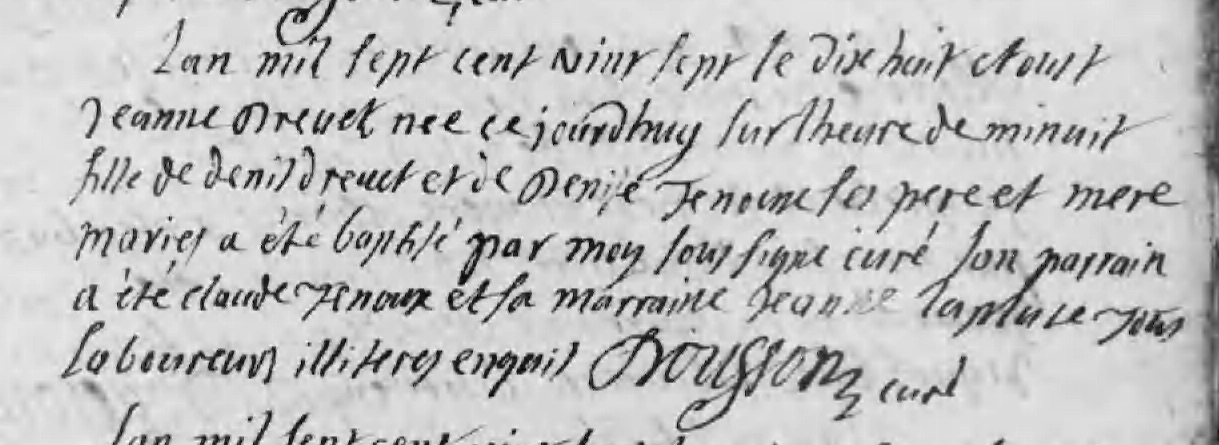 Lan mil sept cent vint sept le dix huit Aoust
Jeanne Drevet nee ce jourdhuy sur lheure de minuit
fille de denis drevet et de Denise Jenoux ses pere et mere
maries a été baptisé par moy sous signe curé son parrain
a été claude Jenoux et sa marraine jeanne tous
laboureurs illiteres enquis curé
Lan mil sept cent